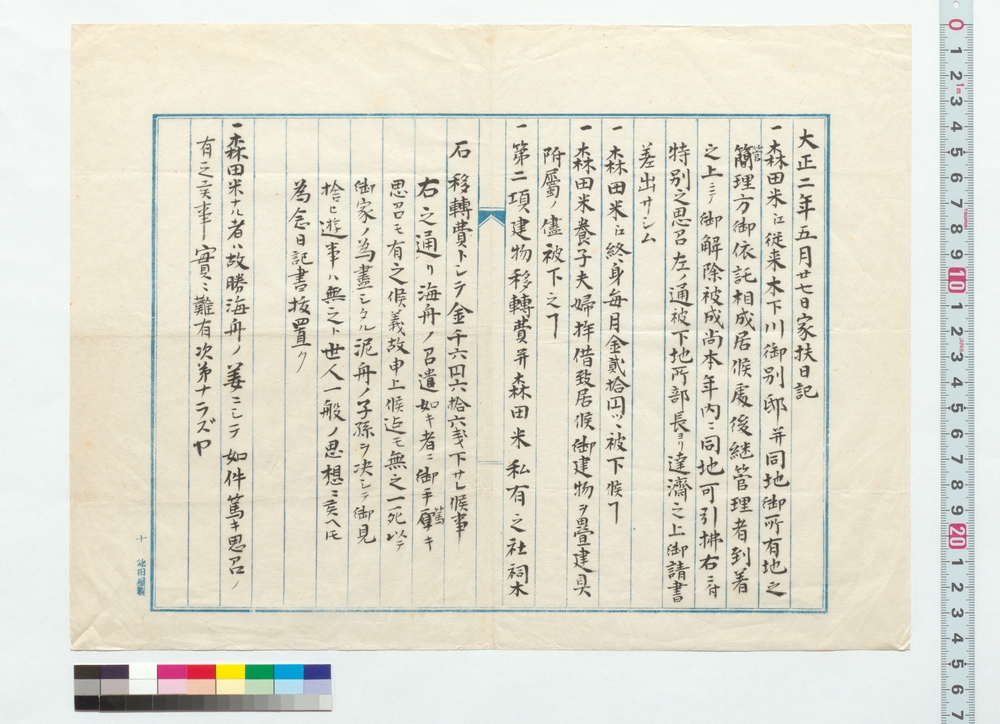 大正二年五月廿七日家扶日記
一森田米江従来木下川御別邸并同地御所有地之
管理方御依託相成居候處後継管理者到着
之上ニテ御解除被成尚本年内ニ同地可引拂右ニ付
特別之思召左ノ通被下地所部長ヨリ達濟之上御請書
差出サシム
一森田米江終身毎月金貳拾円ツヽ被下候ヿ
一森田米養子夫婦拝借致居候御建物ヲ畳建具
附屬ノ儘被下之ヿ
一第二項建物移轉費并森田米私有之社祠木
石移轉費トシテ金千六円六拾六戔下サレ候事
右之通り海舟ノ召遣如キ者ニ御手篤キ
思召モ有之候義故申上候迠モ無之一死以テ
御家ノ為盡シタル泥舟ノ子孫ヲ决シテ御見
捨ヒ遊事ハ無之ト世人一般ノ思想ニ候ヘ𪜈
為念日記書抜置ク
一森田米ナル者ハ故勝海舟ノ妾ニシテ如件篤キ思召ノ
有之候事實ニ難有次第ナラズヤ
十 池田屋製